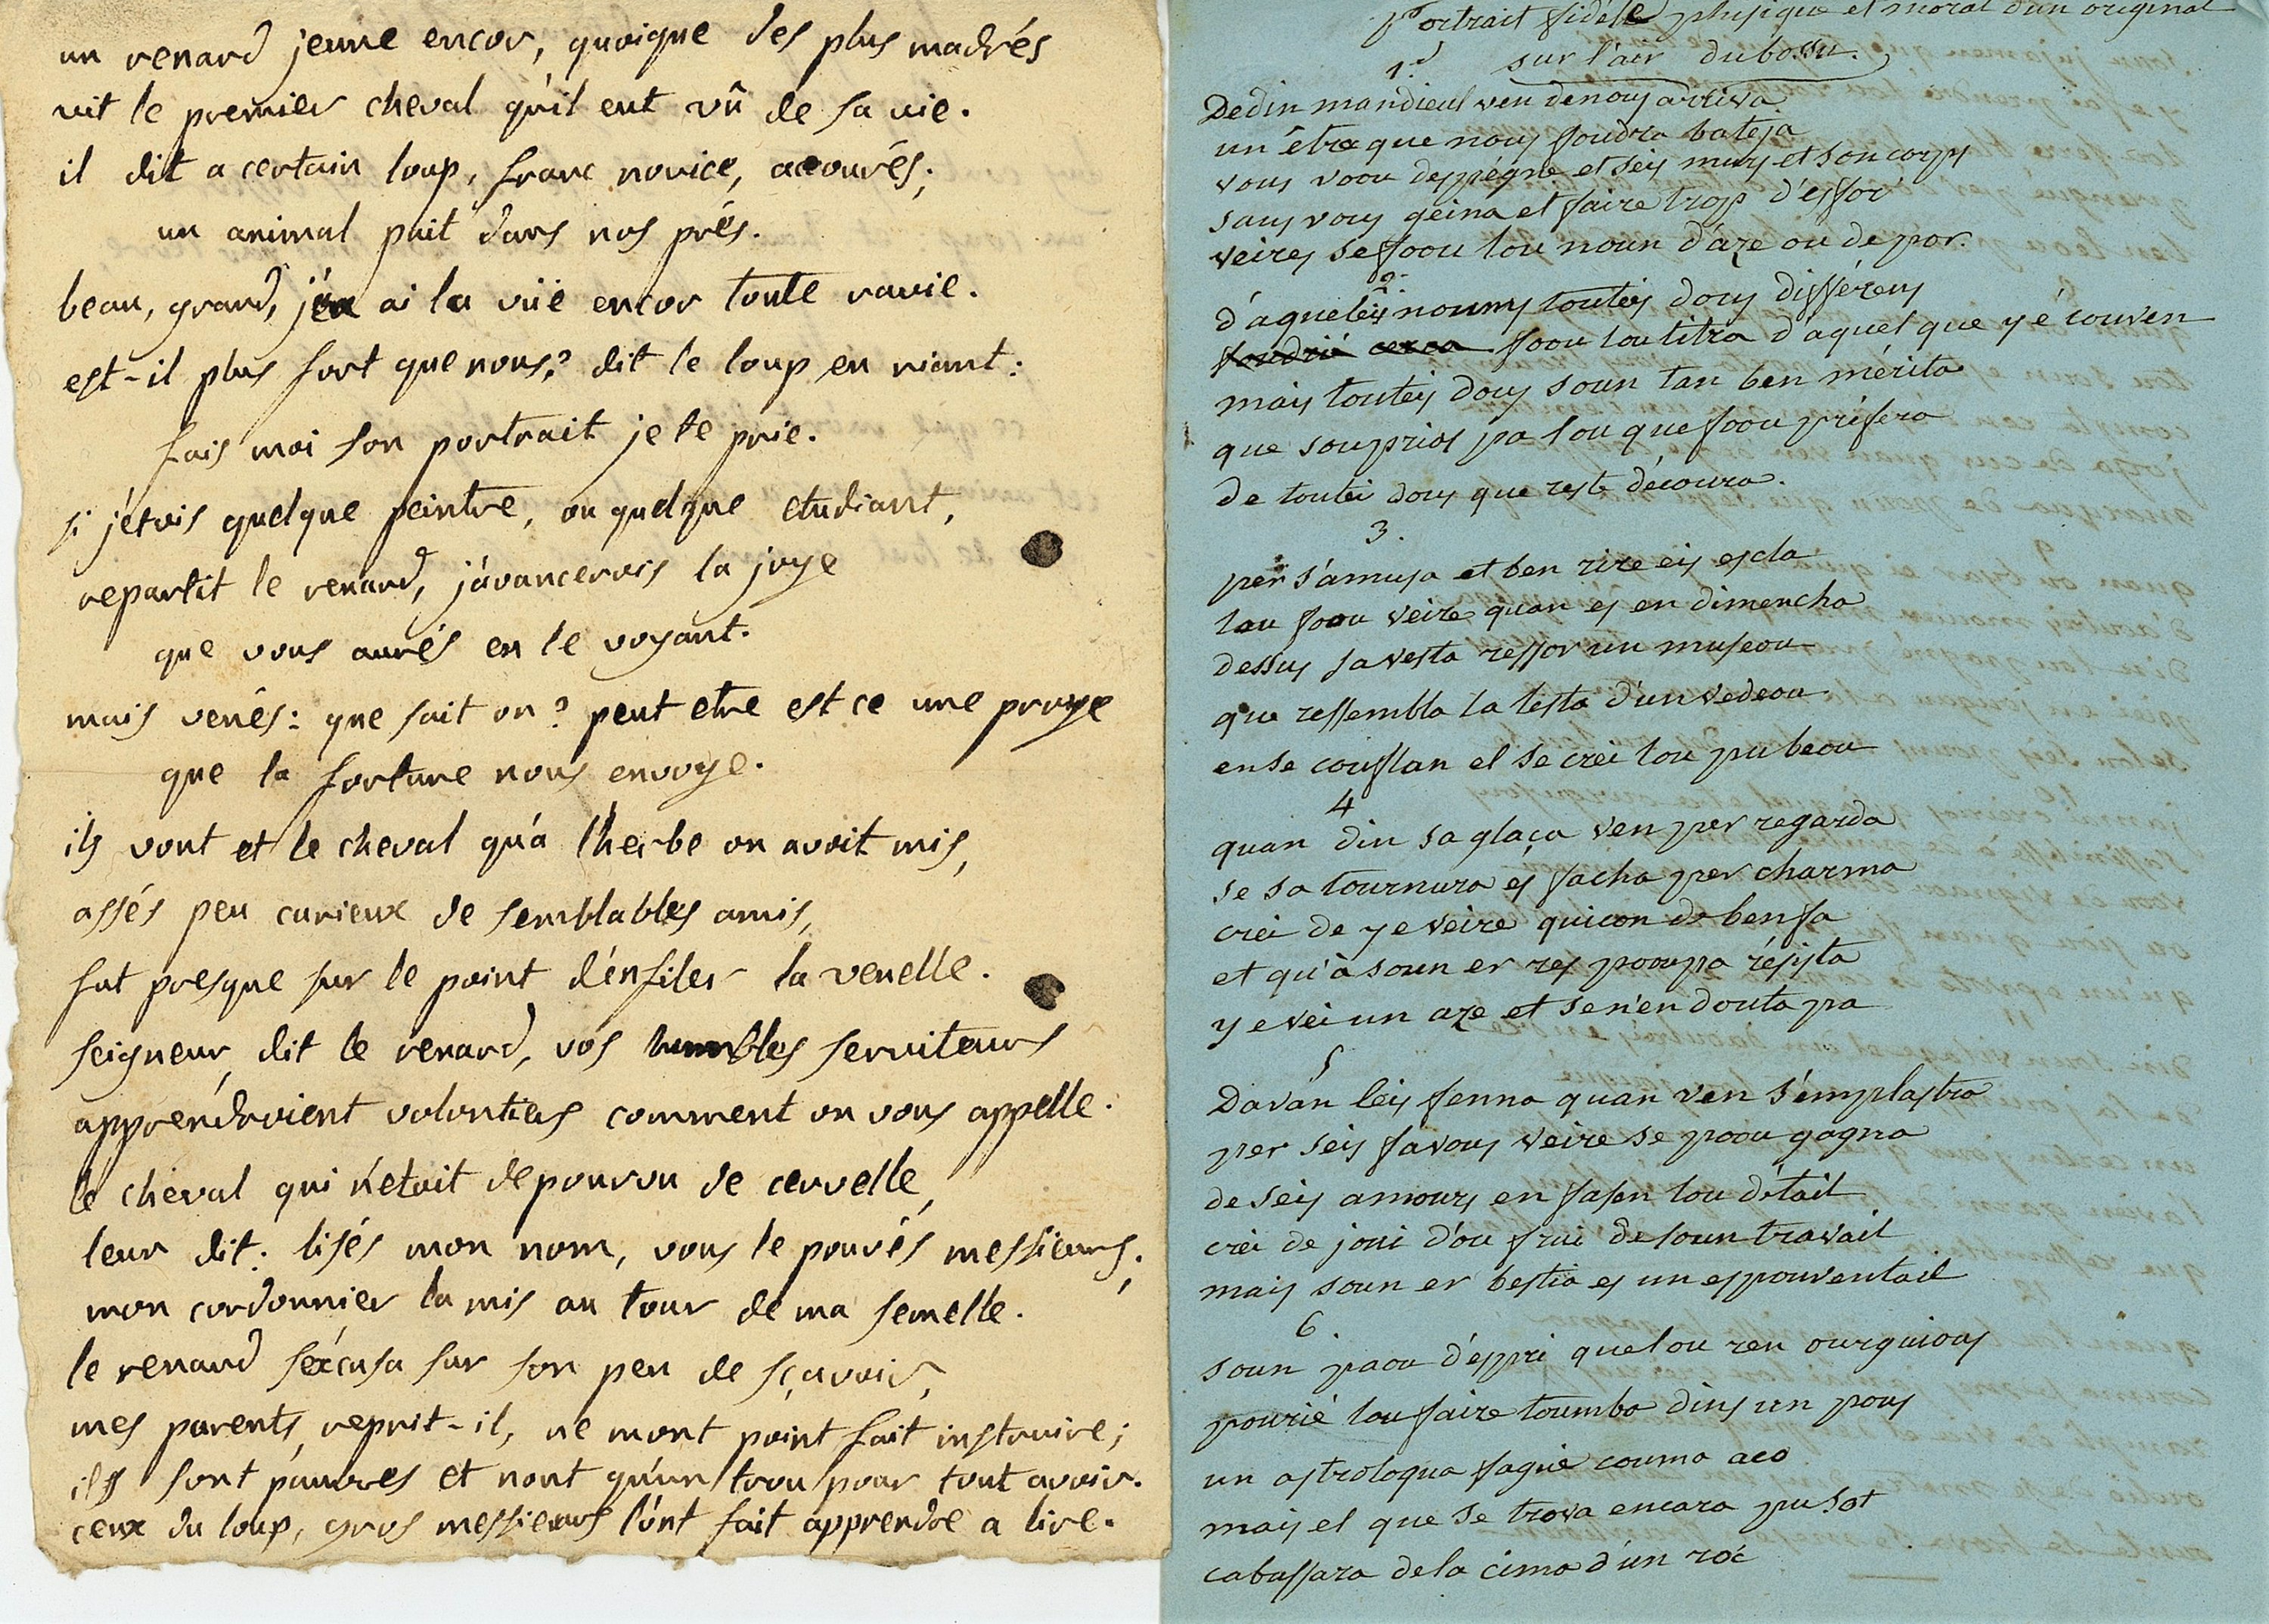 un renard jeune encor, quoique des plus madrés
vit le premier cheval qu'il eut vû de sa vie.
il dit a certain loup, franc novice, acourés;
un animal pait dans nos prés.
beau, grand, j'en ai la vüe encor toute ravie.
est-il plus fort que nous? dit le loup en riant:
fais moi son portrait je te prie.
si j'étois quelque peintre, ou quelque etudiant,
repartit le renard, j'avancerois la joye
que vous aurés en le voyant.
mais venés: que sait on? peut etre est ce une proye
que la fortune nous envoye.
ils vont et le cheval qu'a l'herbe on avoit mis,
assés peu curieux de semblables amis,
fut presque sur le point d'énfiler la venelle.
seigneur, dit le renard, vos humbles serviteurs
apprendroient volontiers comment on vous appelle.
le cheval qui n'etoit depourvu de cervelle,
leur dit: lisés mon nom, vous le pouvés messieurs;
mon cordonnier la mis au tour de ma semelle.
le renard s'éxcusa sur son peu de sçavoir,
mes parents, reprit-il, ne mont point fait instruire;
ils sont pauvres et nont qu'un trou pour tout avoir.
ceux du loup, gros messieurs l'ont fait apprendre a lire.
Portrait fidéle physique et moral d'un original
sur l'air du bossu.
1.
Dedin mandieul ven denous arriva
un êtra que nous foudra bateja
vous voou despégne et seis murs et son corps
sans vous geina et faire trop d'effor
veires se foou lou noun d'aze ou de por.
2.
d'aqueleis noums touteis dous différens
foudrié cerca foou lou titra d'aquel que yé couven
mais touteis dous soun tan ben mérita
que souprias pa lou que foou préfera
de toutei dous que reste découra.
3.
per s'amusa et ben rire eis escla
lou foou veire quan es en dimencha
dessus sa vesta ressor un museou
que ressembla la testa d'un vedeou
en se couflan el se crei lou pu beou
4
quan din sa glaça ven per regarda
se sa tournura es facha per charma
crei de ye veire quicon de ben fa
et qu'à soun er res poou pa résista
ye vei un aze et se n'en douta pa
5
Davan leis fenna quan ven s'emplastra
per seis favous veire se poou gagna
de seis amours en fasen lou détail
crei de joui d'ou frui de soun travail
mais soun er bestia es un espouventail
6.
soun paou d'espri que lou ren ourguious
pourié lou faire toumba dins un pous
un astrologua fagué couma aco
mais el que se trova encara pu sot
cabussara de la cima d'un roc